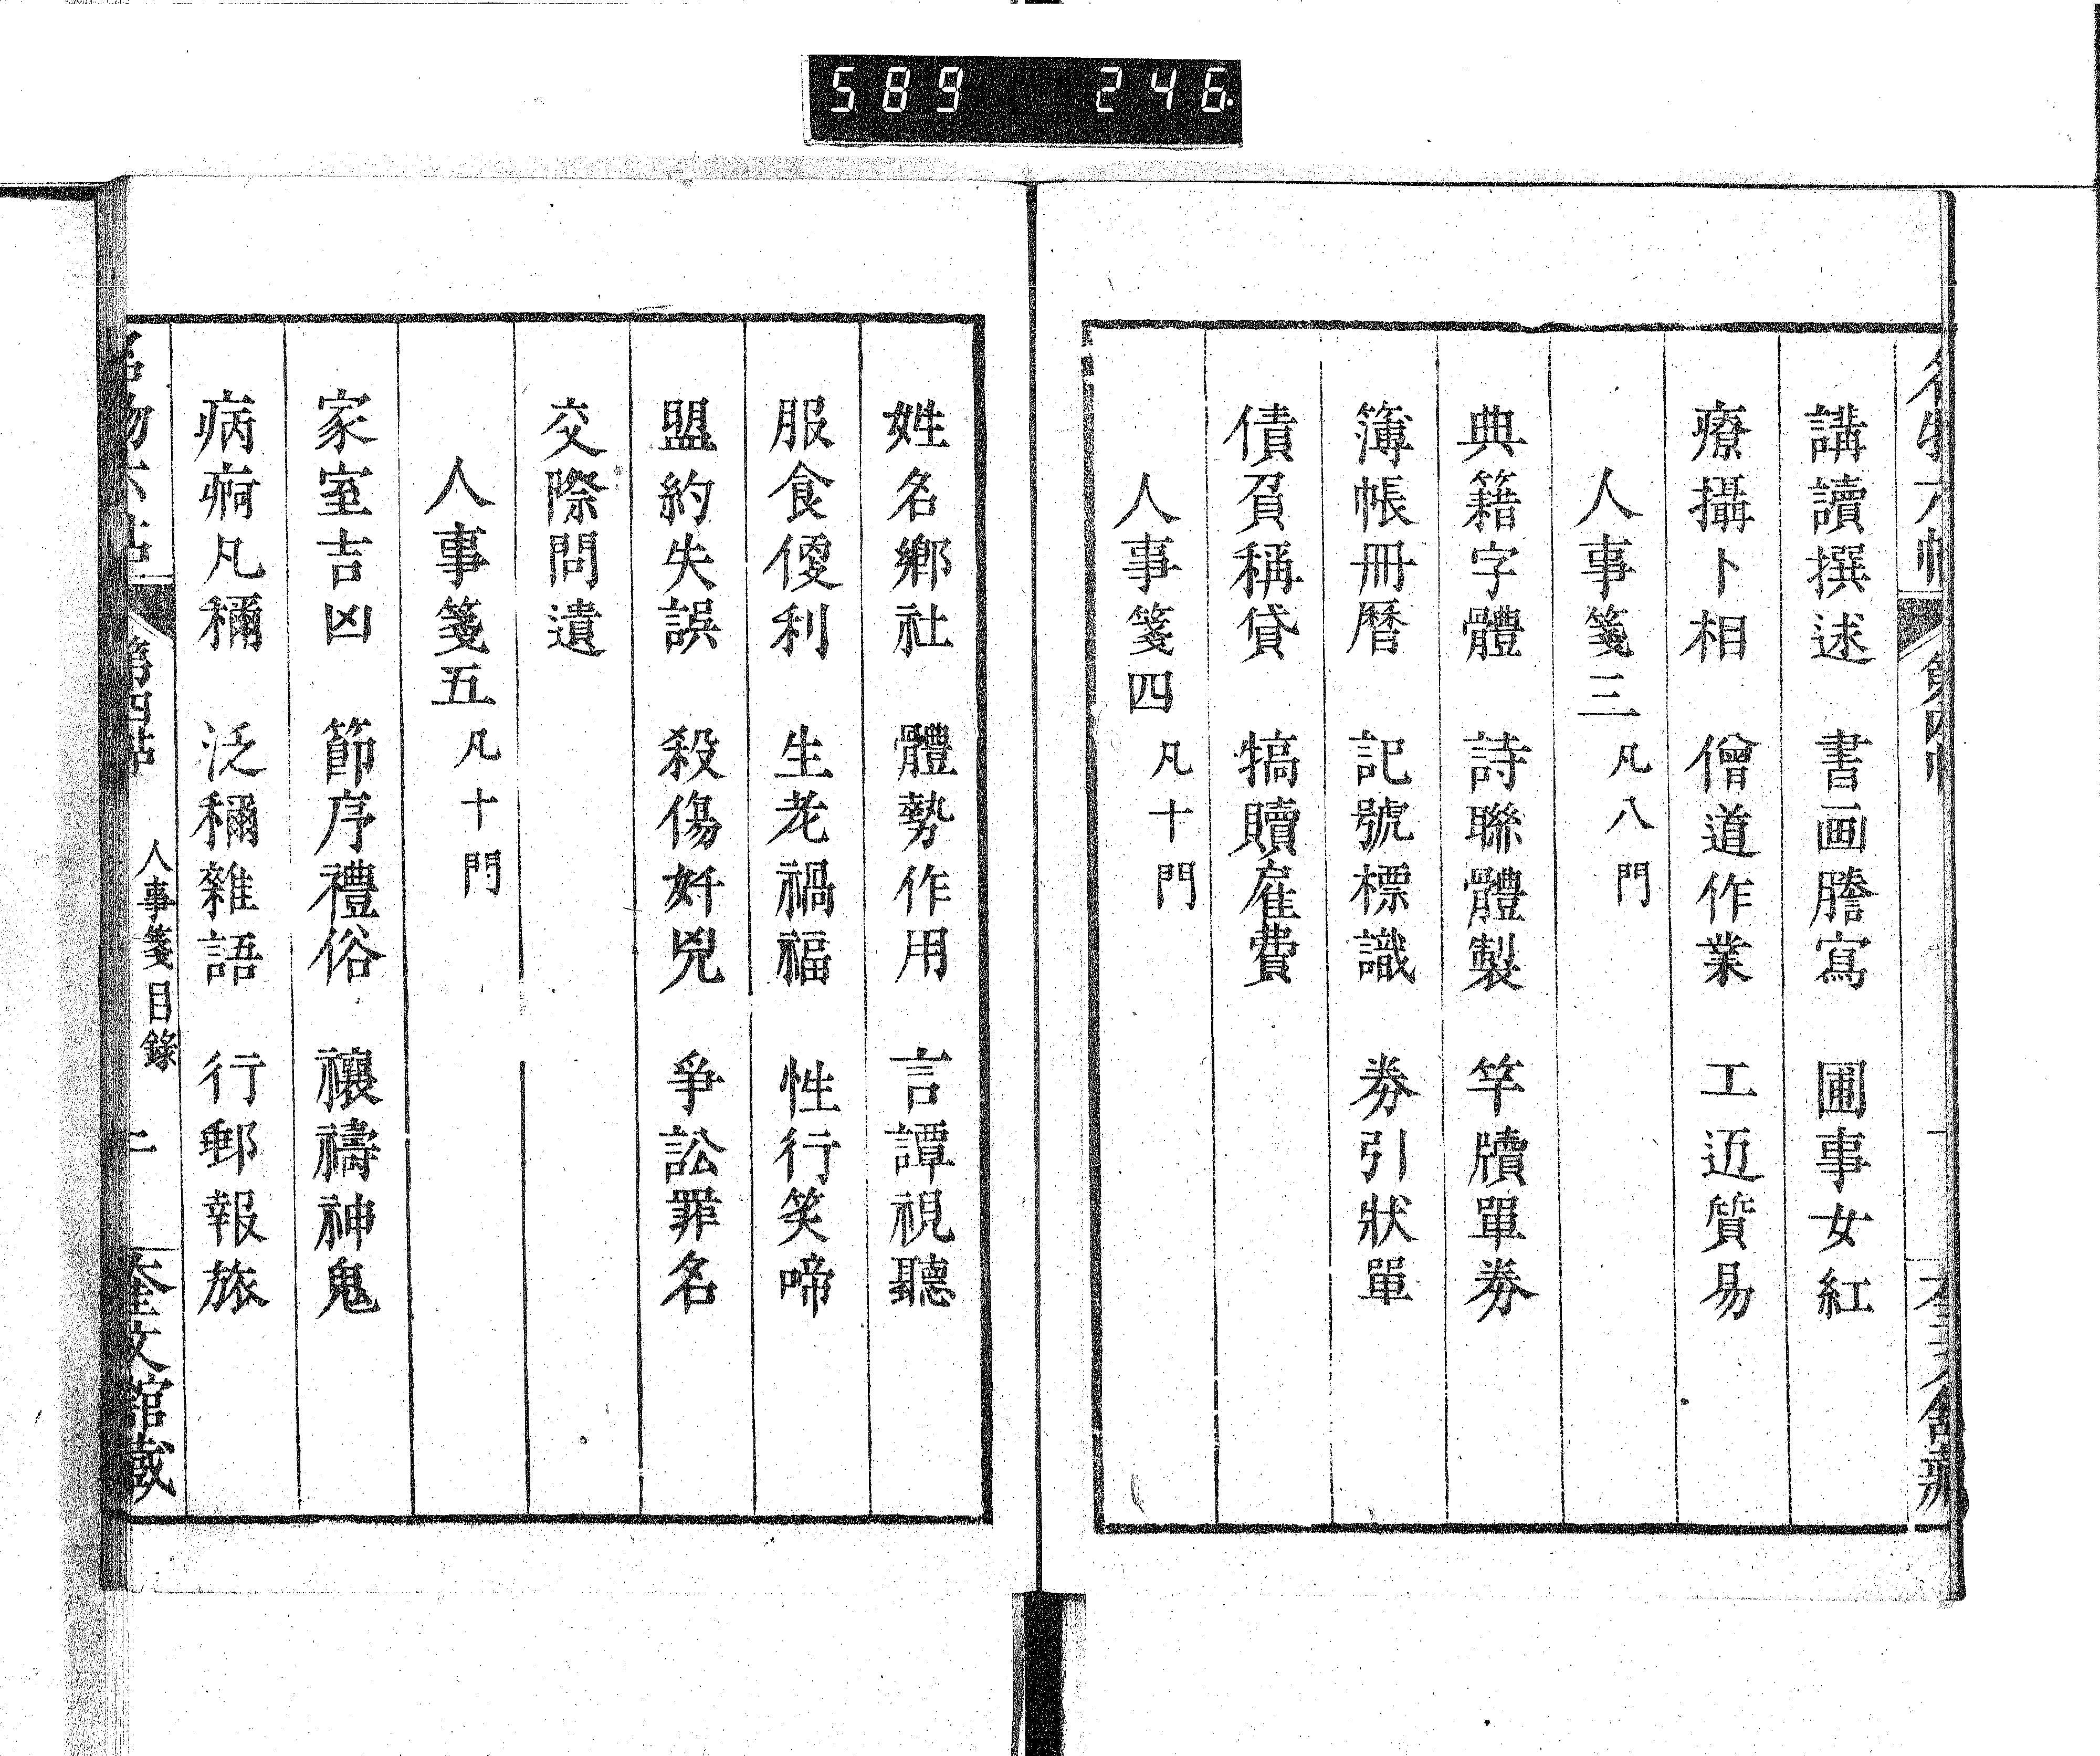 589 246
講讀撰述 書画謄寫 圃事女紅
療攝卜相 僧道作業 工匠貿易
人事箋三 凡八門
典籍字體 詩聯體製 竿牘單券
簿帳冊曆 記號標識 券引狀單
債負稱貸 犒贖雇費
人事箋四 凡十門
姓名鄉社 體勢作用 言譚視聽
服食便利 生老禍福 性行笑啼
盟約失誤 殺傷奸兇 爭訟罪名
交際問遺
人事箋五 凡十門
家室吉凶 節序禮俗 禳禱神鬼
病痾凡稱 泛稱雜語 行郵報旅
人事箋目錄 二 奎文館藏